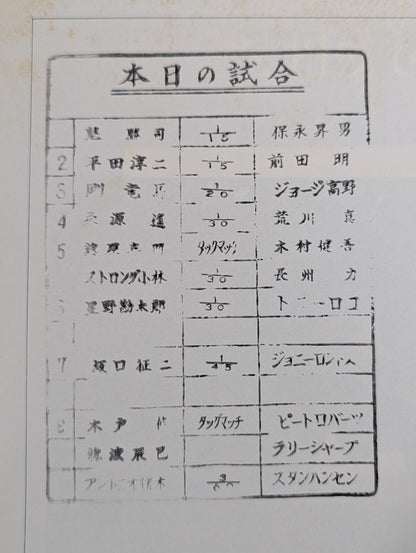 本日の試合
司 1/15 保永昇男
2 平田淳二 1/15 前田明
3 1/20 ジョージ高野
4 源 1/30 荒川真
5 タッグマッチ 木村健吾
ストロング小林 1/30 長州力
6 星野勘太郎 1/30 トニーロコ
7 坂口征二 1/45 ジョニーロンドス
8 木戸修 タッグマッチ ピートロバーツ
藤波辰巳 ラリーシャープ
アントニオ猪木 スタンハンセン